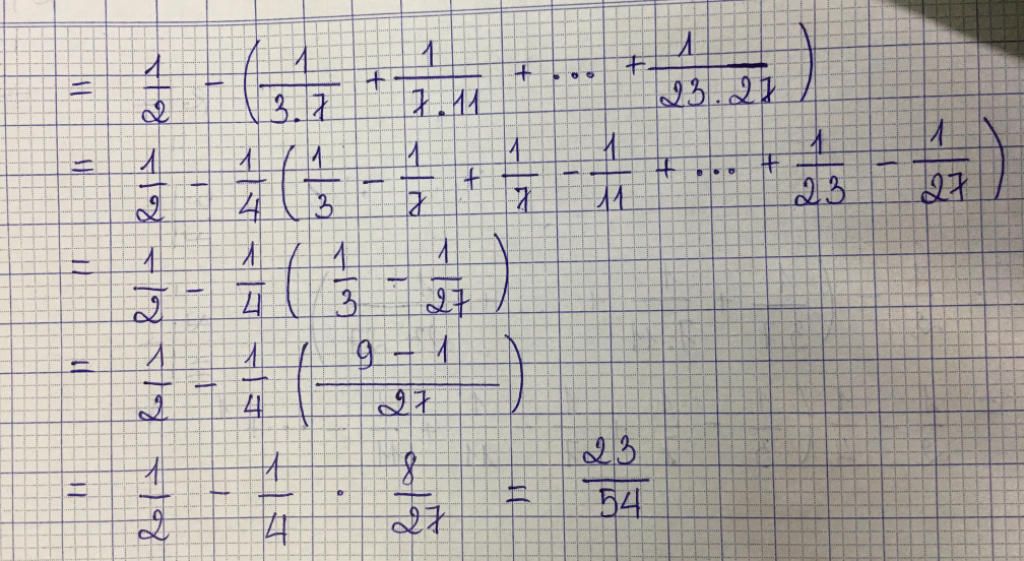 = 1/2 - (1/3.7 + 1/7.11 + ... + 1/23.27)
= 1/2 - 1/4 (1/3 - 1/7 + 1/7 - 1/11 + ... + 1/23 - 1/27)
= 1/2 - 1/4 (1/3 - 1/27)
= 1/2 - 1/4 (9 - 1/27)
= 1/2 - 1/4 . 8/27 = 23/54